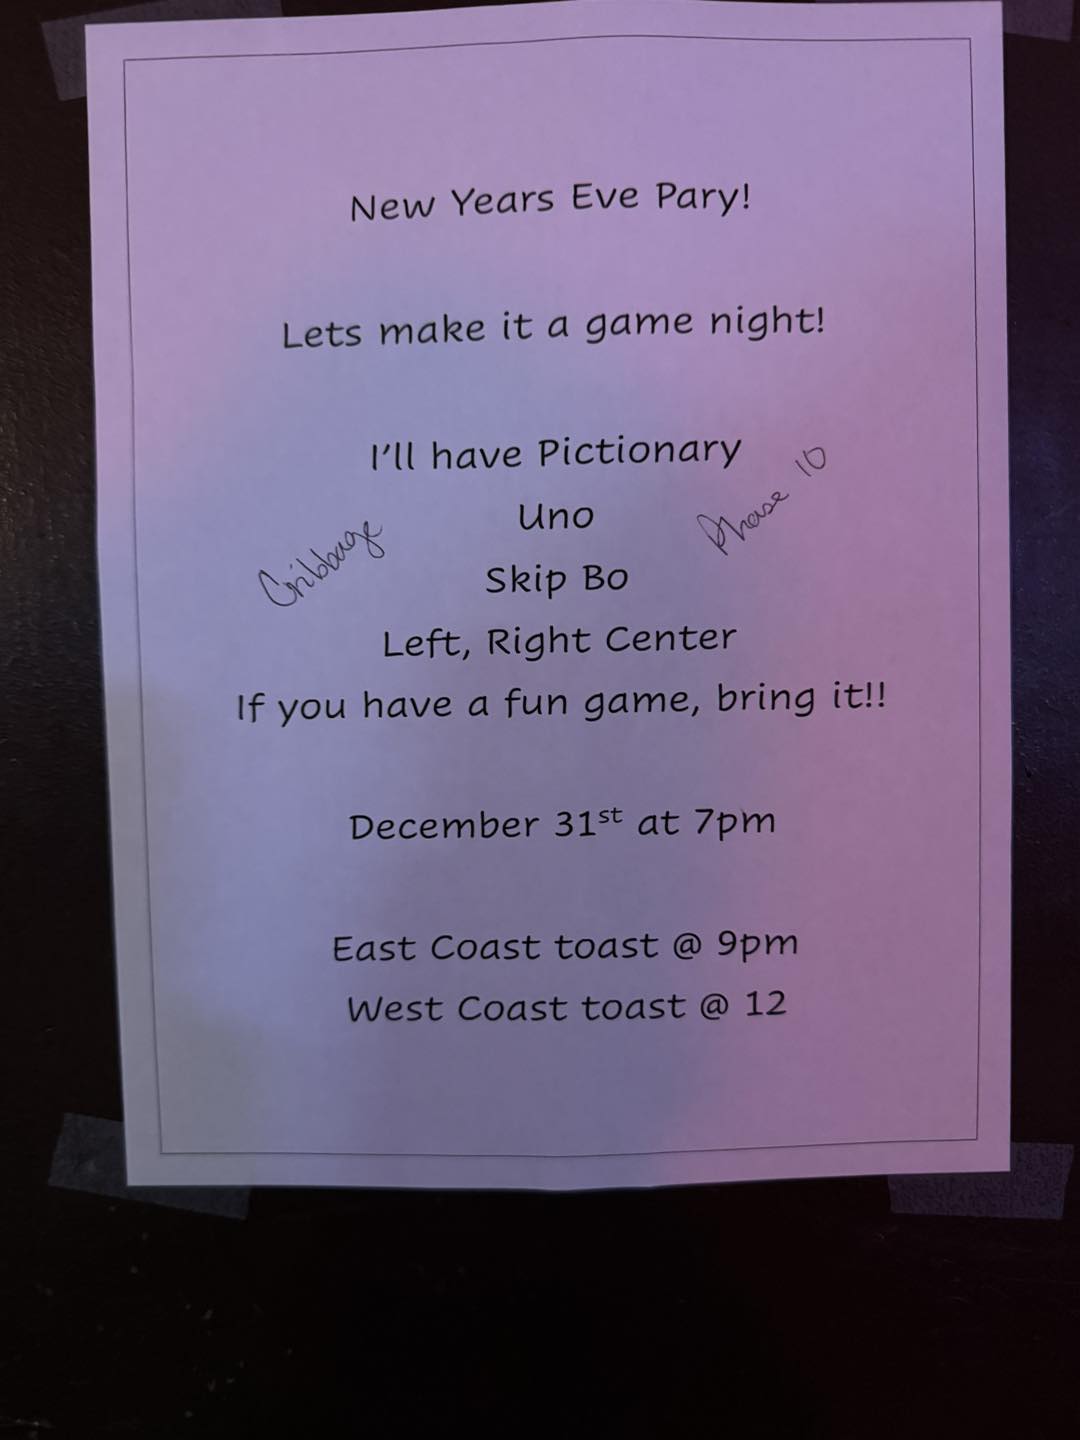 New Years Eve Pary!
Lets make it a game night!
I'll have Pictionary
Uno
Cribbage
Phase 10
Skip Bo
Left, Right Center
If you have a fun game, bring it!!
December 31st at 7pm
East Coast toast @ 9pm
West Coast toast @ 12